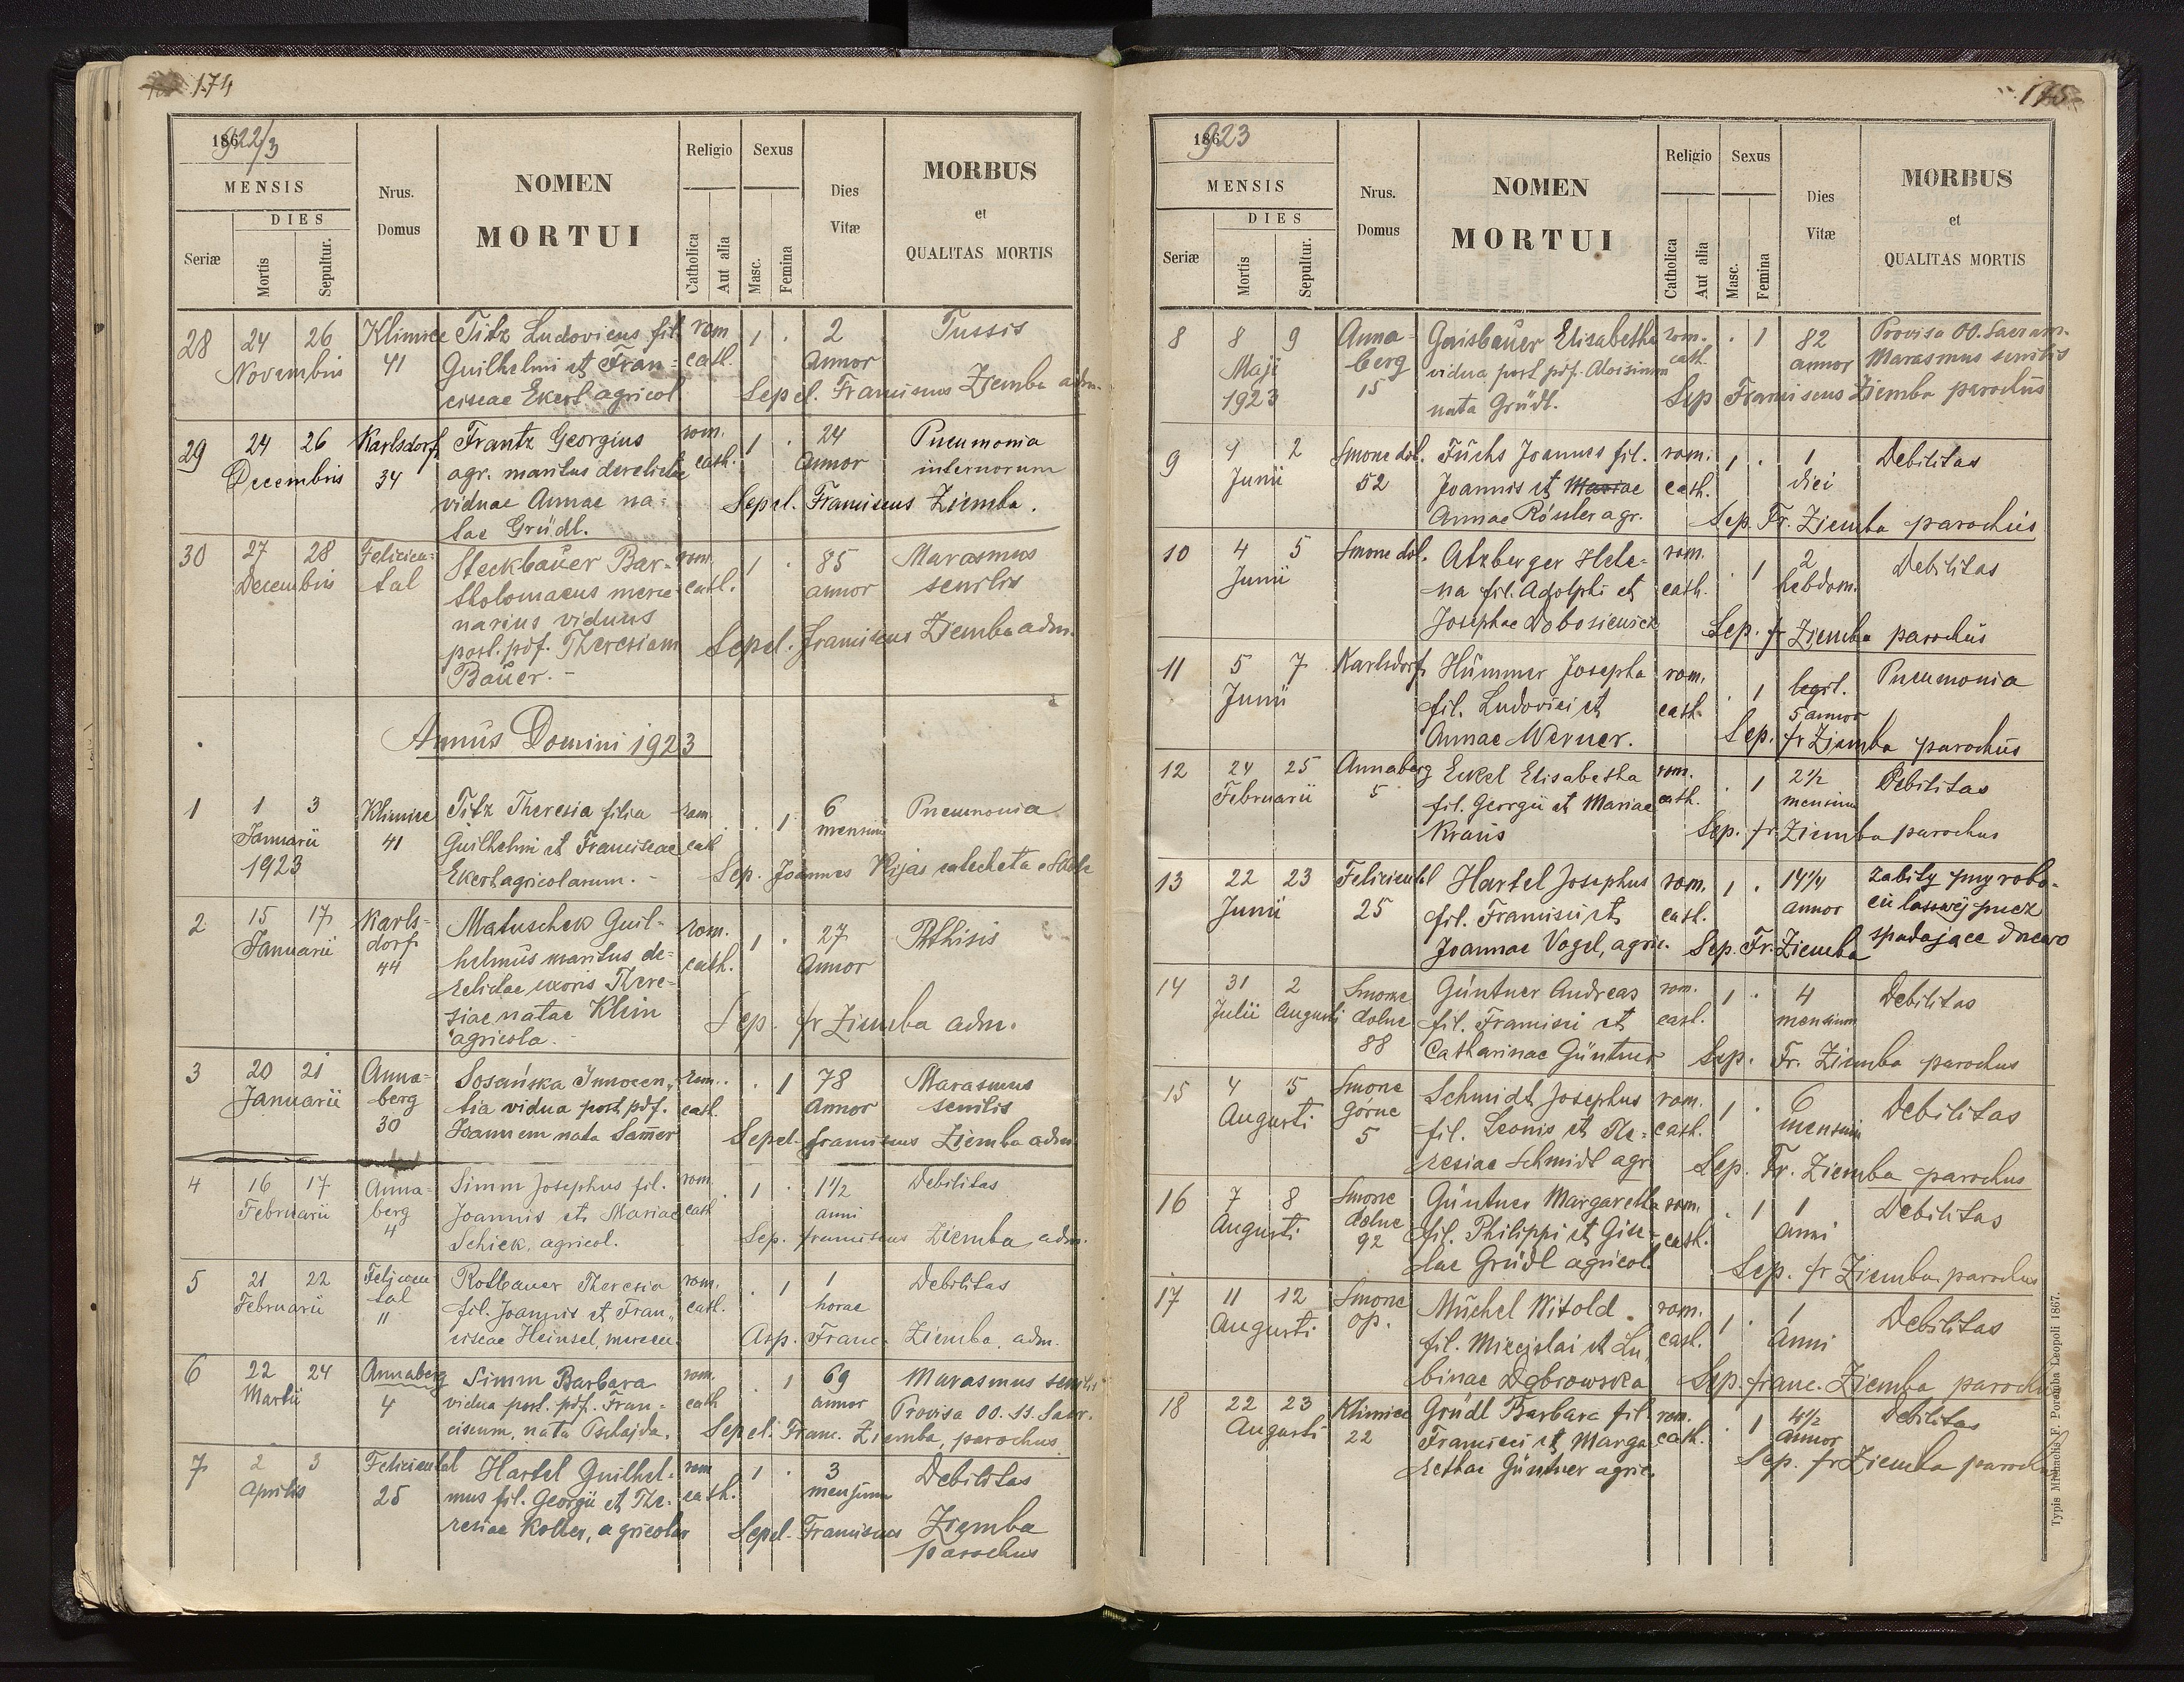 174
186 922/3
MENSIS
DIES
Seriæ
Mortis
Sepultur.
Nrus.
Domus
NOMEN
MORTUI
Religio
Catholica
Aut alia
Sexus
Masc.
Femina
Dies
Vitæ
MORBUS
et
QUALITAS MORTIS
28 24 26 Klimiec Titz Ludovicus fil. rom 1 . 2 Tussis
Novembris 41 Guilhelmi et Fran= cath. Annor
ciscae Ekert agricol. Sepel. Franciscus Ziemba adm.
29 24 26 Karlsdorf Frantz Georgius rom. 1 . 24 Pneumonia
Decembris 34 agr. maritus derelictae cath. Annor internorum
viduae Annae na= Sepel. Franciscus Ziemba.
tae Grüdl.
30 27 28 Felicien= Steckbauer Bar- rom. 1 . 85 Marasmus
Decembris tal tholomaeus merce- cath. annor senilis
narius viduus
post. pdf. Theresiam Sepel. Franciscus Ziemba adm.
Bauer. -
Annus Domini 1923
1 1 3 Klimiec Titz Theresia filia rom. . 1 6 Pneumonia
Januarii 41 Guilhelmi et Franciscae cat mensium
1923 Ekert agricolarum. - Sep. Joannes Kijas catecheta e Skole
2 15 17 Karls- Matuschek Guil- rom. 1 . 27 Phthisis
Januarii dorf helmus maritus de- cath. Annor
44 relictae uxoris There-
siae natae Klein Sep. fr Ziemba adm.
agricola. -
3 20 21 Anna- Sosańska Innocen„ rom. . 1 78 Marasmus
Januarii berg tia vidua post pdf. cath. Annor senilis
30 Joannem nata Samer Sepel. franciscus Ziemba adm
4 16 17 Anna- Simm Josephus fil. rom. 1 . 1 1/2 Debilitas
Februarii berg Joannis et Mariae cath anni
4 Schick, agricol. Sep. franciscus Ziemba, adm.
5 21 22 Felicien Rotbauer Theresia rom. . 1 1 Debilitas
Februarii tal fil. Joannis et Fran„ cath. horae
11 ciscae Heinsel, mercen. Asp. Franc. Ziemba, adm.
6 22 24 Annaberg Simm Barbara rom. . 1 69 Marasmus senilis
Martii 4 vidua post. pdf. Fran= cath annor Provisa OO. SS. Sacr.
ciscum, nata Pschajda. Sepel. Franc. Ziemba, parochus.
7 2 3 Felicientál Hartel Guilhel- rom 1 . 3 Debilitas
Aprilis 25 mus fil. Georgii et The- cath. mensium
resiae Kolter, agricolar Sepel. Franciscus Ziemba
parochus
175
186 923
MENSIS
DIES
Seriæ
Mortis
Sepultur.
Nrus.
Domus
NOMEN
MORTUI
Religio
Catholica
Aut alia
Sexus
Masc.
Femina
Dies
Vitæ
MORBUS
et
QUALITAS MORTIS
8 8 9 Anna- Gaisbauer Elisabetha rom. . 1 82 Provisa OO. Sacram.
Maji berg vidua post pdf. Aloisium cath. annor Marasmus senilis
1923 15 nata Grüdl. Sep Franciscus Ziemba parochus
9 1 2 Smorze dol. Fuchs Joannes fil. rom. 1 . 1 Debilitas
Junii 52 Joannis et Mariae cath. diei
Annae Rössler agr. Sep. Fr. Ziemba parochus
10 4 5 Smorze dol. Atzberger Hele- rom. . 1 2 Debilitas
Junii na fil. Adolphi et cath. hebdom.
Josephae Dobosiewicz Sep. fr Ziemba parochus
11 5 7 Karlsdorf Hümmer Josepha rom. . 1 legit. Pneumonia
Junii fil. Ludovici et cath. 5 annor
Annae Werner. Sep. fr Ziemba parochus
12 24 25 Annaberg Eckel Elisabetha rom. . 1 2 1/2 Debilitas
Februarii 5 fil. Georgii et Mariae cath. mensium
Kraus Sep. fr Ziemba parochus
13 22 23 Felicientál Hartel Josephus rom. 1 . 14 1/4 zabity przy robo-
Junii 25 fil. Francisci et cath. annor cie lasowej przez
Joannae Vogel, agric. Sep. Fr. Ziemba spadające drzewo
14 31 2 Smorze Güntner Andreas rom. 1 . 4 Debilitas
Julii Augusti dolne fil. Francisci et cath. mensium
88 Catharinae Güntner Sep. Fr. Ziemba parochus
15 4 5 Smorze Schmidt Josephus rom. 1 . 6 Debilitas
Augusti górne fil. Leonis et The= cath. mensium
5 resiae Schmidt agr Sep. Fr. Ziemba parochus
16 7 8 Smorze Güntner Margaretha rom. . 1 1 Debilitas
Augusti dolne fil. Philippi et Gise- cath. Anni
92 lae Grüdl agricol. Sep. fr Ziemba parochus
17 11 12 Smorze Müchel Witold. rom. 1 . 1 Debilitas
Augusti op. fil. Miecislai et Lu„ cath. Anni
binae Dąbrowska Sep. franc. Ziemba parochus
18 22 23 Klimiec Grüdl Barbara fil. rom. . 1 4 1/2 Debilitas
Augusti 22 Francisci et Marga cath. annor
rethae Güntner agric. Sep. fr Ziemba parochus
Typis Michaelis F. Poremba Leopoli 1867.